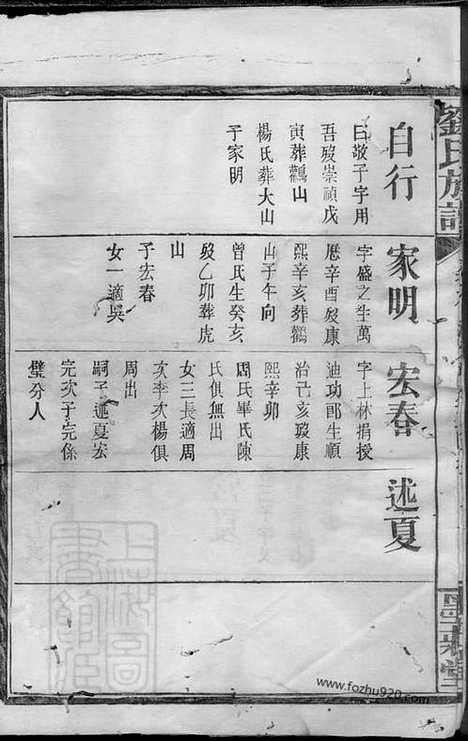 劉氏族譜
自行
曰敬子字用
吾歿崇禎戊
寅葬鸛山
楊氏葬大山
子家明
家明
字盛之生萬
曆辛酉歿康
熙辛亥葬鸛
山子午向
曾氏生癸亥
歿乙卯葬虎
山
子宏春
女一適吳
宏春
字上林捐授
迪功郎生順
治己亥歿康
熙辛卯
周氏畢氏陳
氏俱無出
女三長適周
次李次楊俱
周出
嗣子述夏宏
完次子完係
璧分人
述夏
上海圖
書館藏
www.fozhu920.com